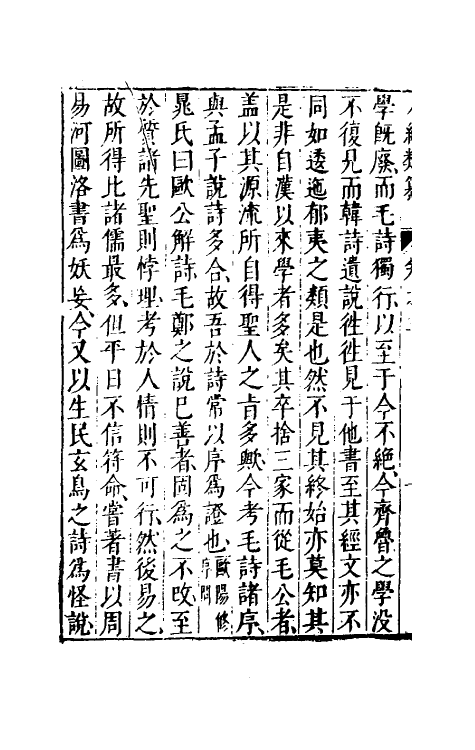 學旣廢而毛詩獨行以至于今不絶今齊魯之學没
不復見而韓詩遺說徃徃見于他書至其經文亦不
同如逶迤郁夷之類是也然不見其終始亦莫知其
是非自漢以來學者多矣其卒捨三家而從毛公者
盖以其源流所自得聖人之㫖多歟今考毛詩諸序
與孟子說詩多合故吾於詩常以序爲證也歐陽修序問
晁氏曰歐公解詩毛鄭之說已善者固爲之不改至
於質諸先聖則悖理考於人情則不可行然後易之
故所得比諸儒最多但平日不信符命嘗著書以周
易河圖洛書爲妖妄今又以生民玄鳥之詩爲怪說